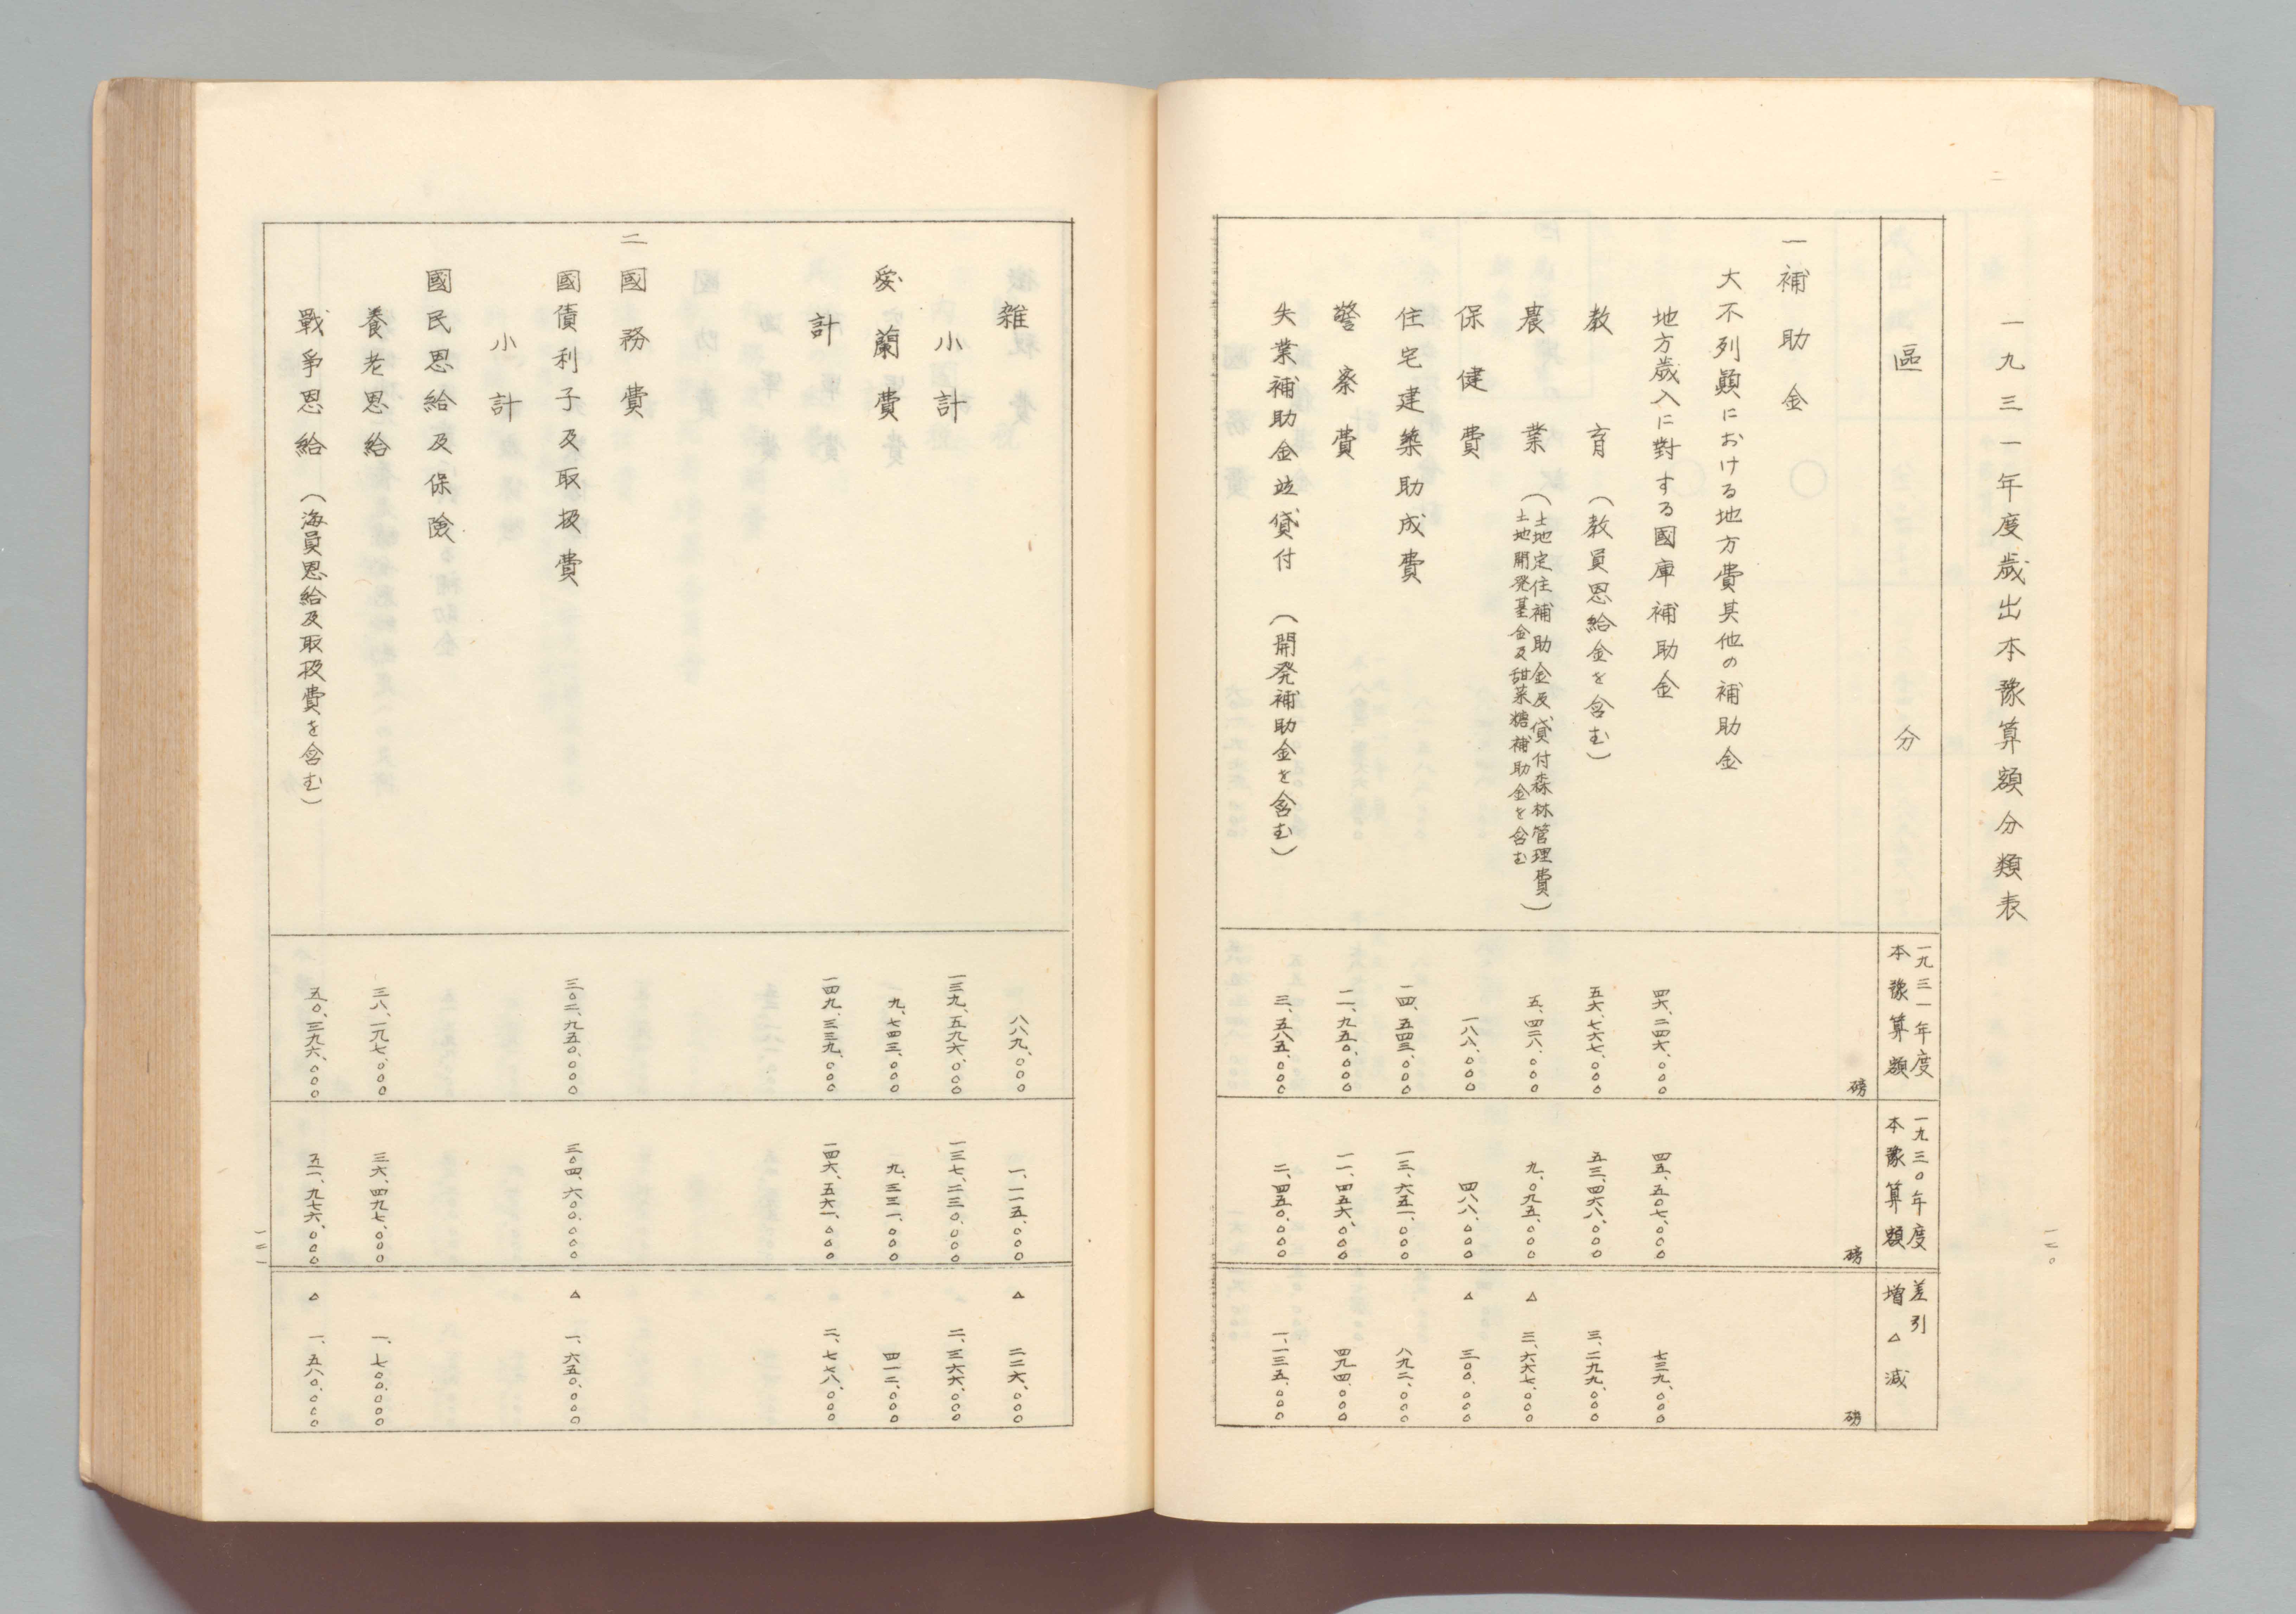 一九三一年度歳出本豫算額分類表
一二〇
區　分
一九三一年度
本豫算額
一九三〇年度
本豫算額
差引
増△減
磅
磅
磅
一補助金
大不列顚における地方費其他の補助金
地方歳入に對する國庫補助金　四六、二四六、〇〇〇　四五、五〇七、〇〇〇　七三九、〇〇〇
教育（教員恩給金を含む）　五六、七六七、〇〇〇　五三、四六八、〇〇〇　三、二九九、〇〇〇
農業（土地定住補助金及貸付森林管理費）
土地開発基金及甜菜糖補助金を含む　五、四二八、〇〇〇　九、〇九五、〇〇〇　△　三、六六七、〇〇〇
保健費　一八八、〇〇〇　四八八、〇〇〇　△　三〇〇、〇〇〇
住宅建築助成費　一四、五四三、〇〇〇　一三、六五一、〇〇〇　八九二、〇〇〇
警察費　一一、九五〇、〇〇〇　一一、四五六、〇〇〇　四九四、〇〇〇
失業補助金並貸付（開発補助金を含む）　三、五八五、〇〇〇　二、四五〇、〇〇〇　一、一三五、〇〇〇
雑　八八九、〇〇〇　一、一一五、〇〇〇　△　二二六、〇〇〇
小計　一三九、五九六、〇〇〇　一三七、二三〇、〇〇〇　二、三六六、〇〇〇
愛蘭費　九、七四三、〇〇〇　九、三三一、〇〇〇　四一二、〇〇〇
計　一四九、三三九、〇〇〇　一四六、五六一、〇〇〇　二、七七八、〇〇〇
二國務費
國債利子及取扱費　三〇二、九五〇、〇〇〇　三〇四、六〇〇、〇〇〇　△　一、六五〇、〇〇〇
小計
國民恩給及保險
養老恩給　三八、一九七、〇〇〇　三六、四九七、〇〇〇　一、七〇〇、〇〇〇
戰爭恩給（海員恩給及取扱費を含む）　五〇、三九六、〇〇〇　五一、九七六、〇〇〇　△　一、五八〇、〇〇〇
一二一